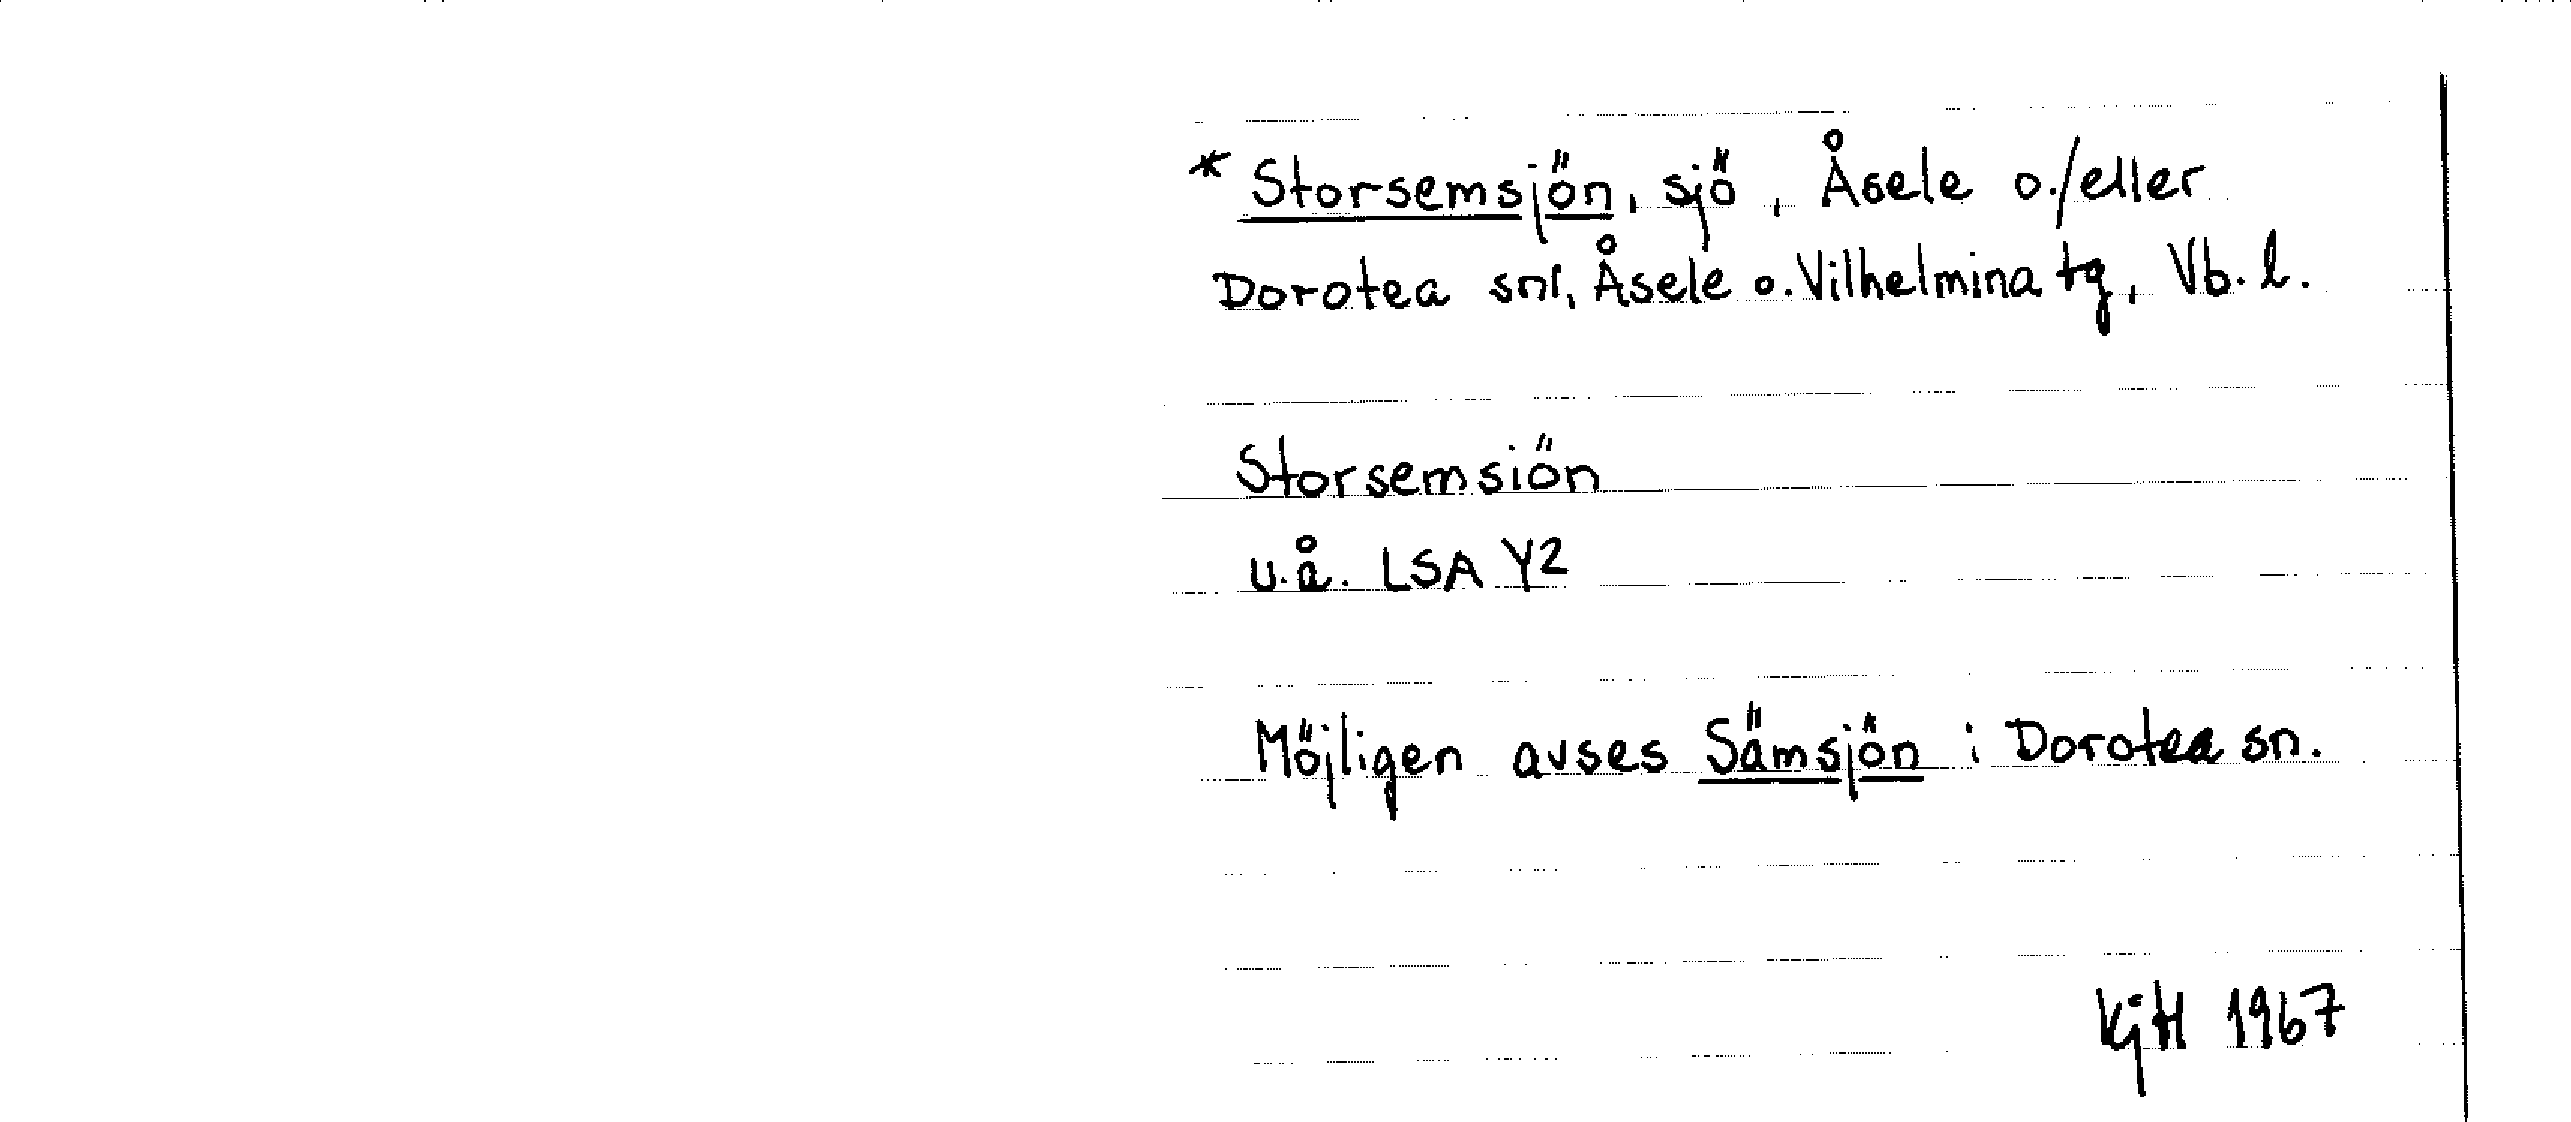 * Storsemsjön, sjö, Åsele o./eller
Dorotea snr, Åsele o. Vilhelmina tg, Vb. l.
Storsemsiön
u.å. LSA Y2
Möjligen avses Sämsjön i Dorotea sn.
KjH 1967